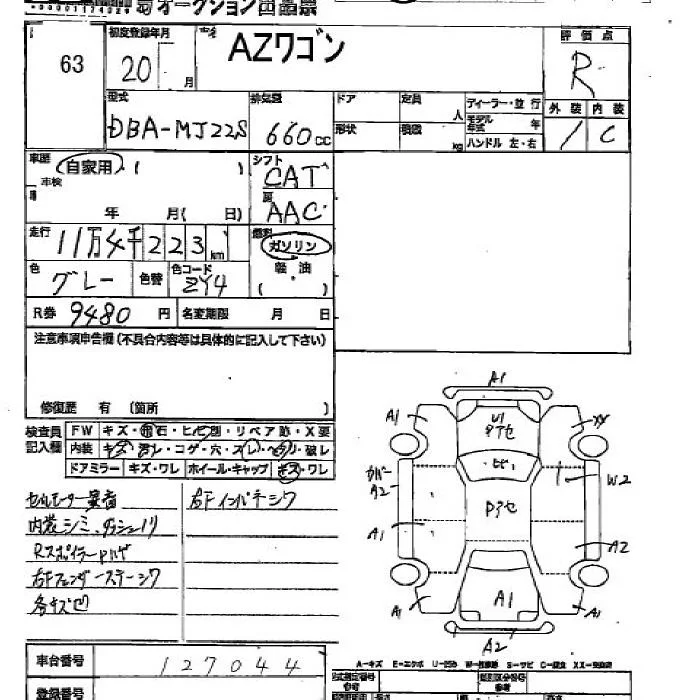 オークション出品票
63
初度登録年月
20
月
AZワゴン
評価点
R
型式
DBA-MJ22S
排気量
660cc
ドア
定員
人
ディーラー・並行
形状
積載
kg
モデル年式
年
ハンドル 左・右
外装 内装
/ C
車歴
自家用・( )
車検
年 月( 日)
シフト
CAT
AAC
走行
11万4千223km
燃料
ガソリン
軽油
( )
色
グレー
色替
色コード
ZY4
R券
9480
円
名変期限
月 日
注意事項申告欄(不具合内容等は具体的に記入して下さい)
修復歴 有 (箇所 )
検査員記入欄
FW キズ・飛石・ヒビ割・リペア跡・X要
内装 キズ・汚レ・コゲ・穴・スレ・ヘタリ・破レ
ドアミラー キズ・ワレ ホイール・キャップ キズ・ワレ
セルモーター異音
内装シミ、ダッシュノリ
Rスポイラー
右Fフェンダーステーシワ
各キズ凹
右Fインパネシワ
A1
A1
U1
XX
カバー
A2
W2
A1
A2
A1
A1
A1
A2
車台番号
127044
登録番号
A-キズ E-エクボ